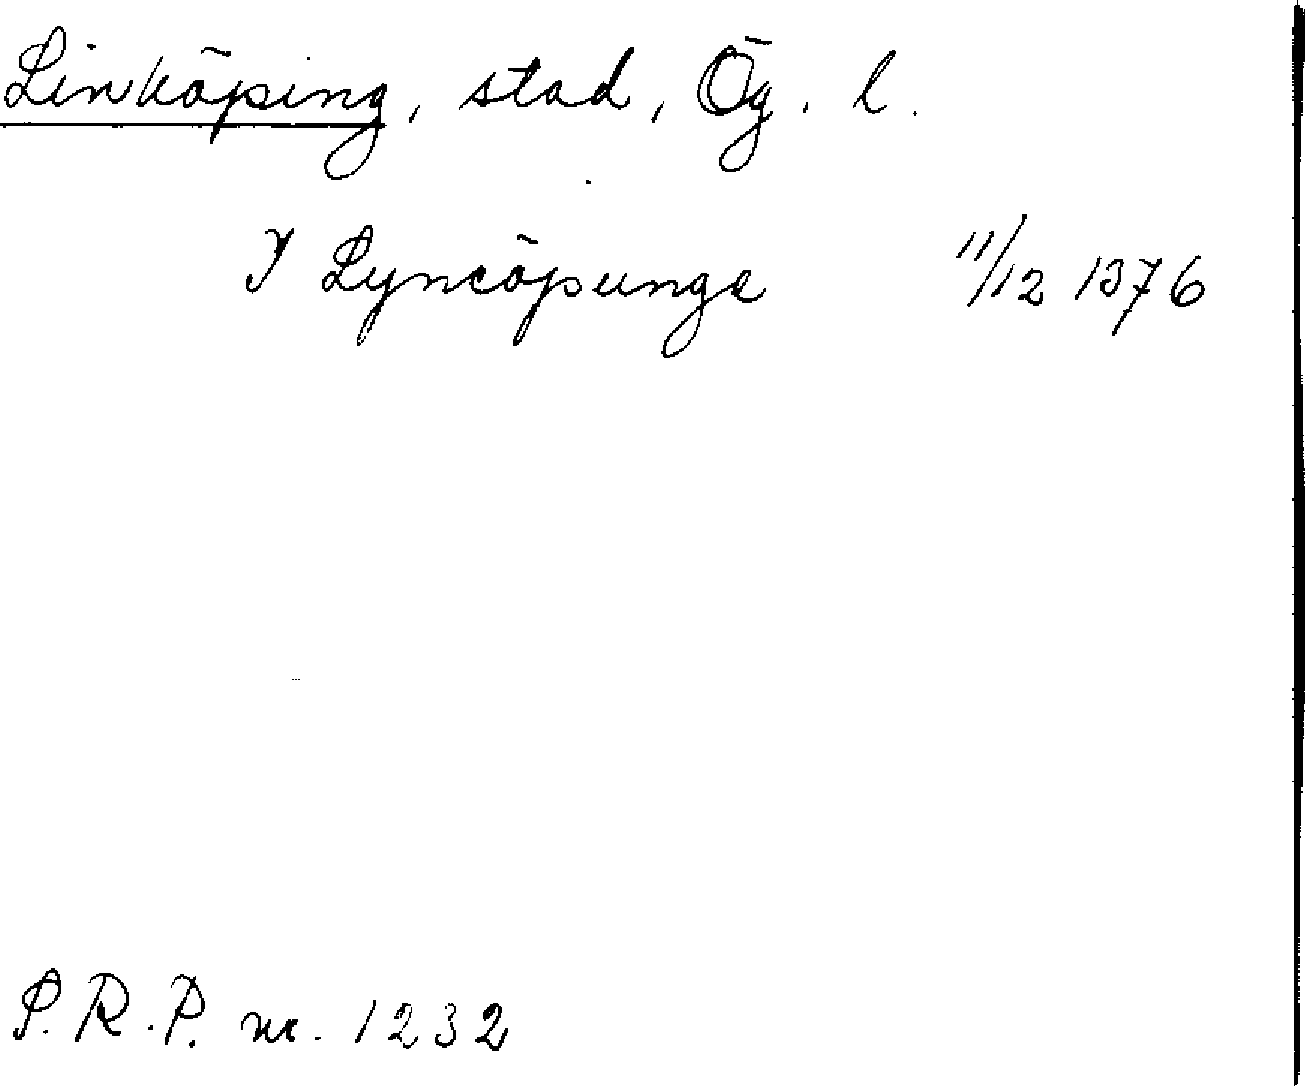 Linköping, stad, Ög. l.
Y Lyncöpunge 11/12 1376
S. R. P. nr. 1232